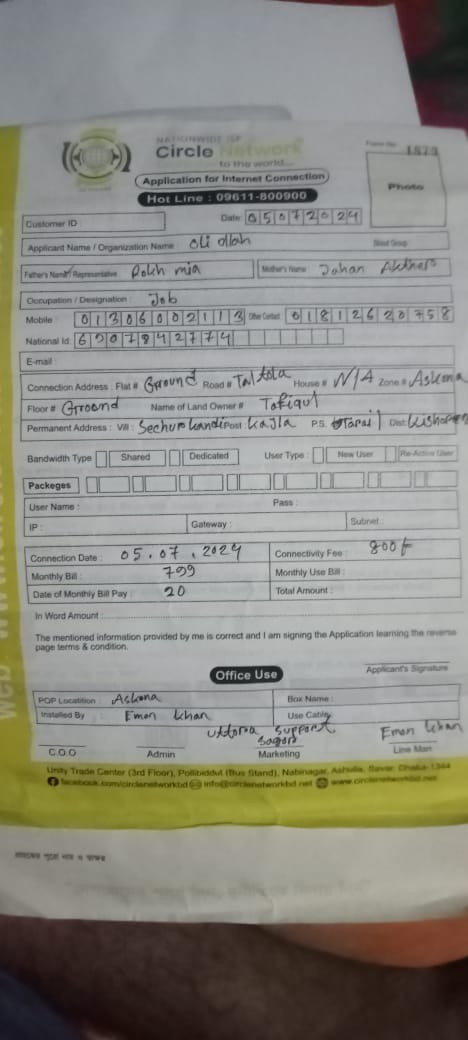 NATIONWIDE ISP
Circle Network
to the world...
Form No 1873
Application for Internet Connection)
Hot Line : 09611-800900
Photo
Customer ID
Date: 05072024
Applicant Name / Organization Name : Oli ollah Blood Group
Father's Name / Representative mia Mother's Name Jahan
Occupation / Designation : Job
Mobile : 01306002113 Other Contact : 01812620758
National Id: 6907842774
E-mail :
Connection Address : Flat # Ground Road # Taltola House # N/A Zone # Askona
Floor # Groond Name of Land Owner # Tofiqul
Permanent Address : Vill : Post : Kajla P.S. Dist:
Bandwidth Type Shared Dedicated User Type : New User Re-Active User
Packeges
User Name : Pass :
IP : Gateway : Subnet :
Connection Date : 05.07.2024 Connectivity Fee : 800
Monthly Bill : 799 Monthly Use Bill :
Date of Monthly Bill Pay : 20 Total Amount :
In Word Amount :
The mentioned information provided by me is correct and I am signing the Application learning the reverse
page terms & condition.
Applicant's Signature
Office Use
POP Locatition : Askona Box Name :
Installed By Emon Khan Use Cable
Uttora Support
Emon Khan
C.O.O Admin Marketing Line Man
Unity Trade Center (3rd Floor), Pollibiddut (Bus Stand), Nabinagar, Ashulia, Savar, Dhaka-1344
facebook.com/circlenetworkbd info@circlenetworkbd.net www.circlenetworkbd.net